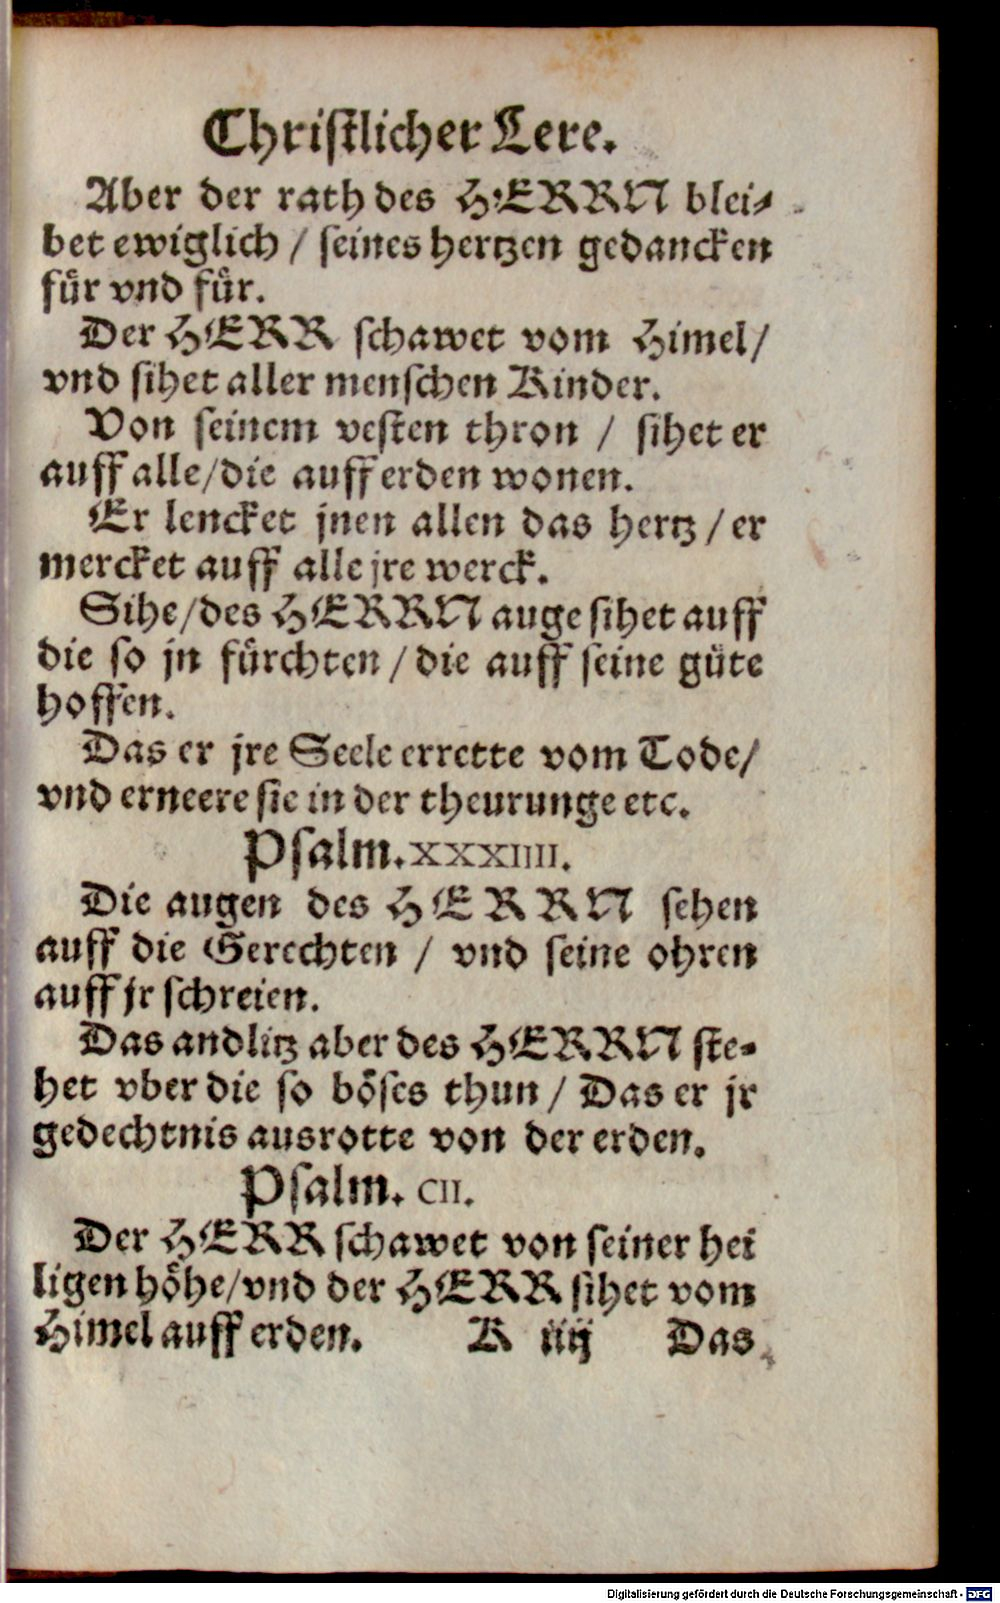 Christlicher Lere.
Aber der rath des HERRN blei-
bet ewiglich / seines hertzen gedancken
fuͤr vnd fuͤr.
Der HERR schawet vom Himel/
vnd sihet aller menschen Kinder.
Von seinem vesten thron / sihet er
auff alle/die auff erden wonen.
Er lencket jnen allen das hertz / er
mercket auff alle jre werck.
Sihe/des HERRN auge sihet auff
die so jn fuͤrchten / die auff seine guͤte
hoffen.
Das er jre Seele errette vom Tode/
vnd erneere sie in der theurunge etc.
Psalm. XXXIIII.
Die augen des HERRN sehen
auff die Gerechten / vnd seine ohren
auff jr schreien.
Das andlitz aber des HERRN ste-
het vber die so boͤses thun / Das er jr
gedechtnis ausrotte von der erden.
Psalm. CII.
Der HERR schawet von seiner hei
ligen hoͤhe/vnd der HERR sihet vom
Himel auff erden. K iiij Das
Digitalisierung gefördert durch die Deutsche Forschungsgemeinschaft - DFG